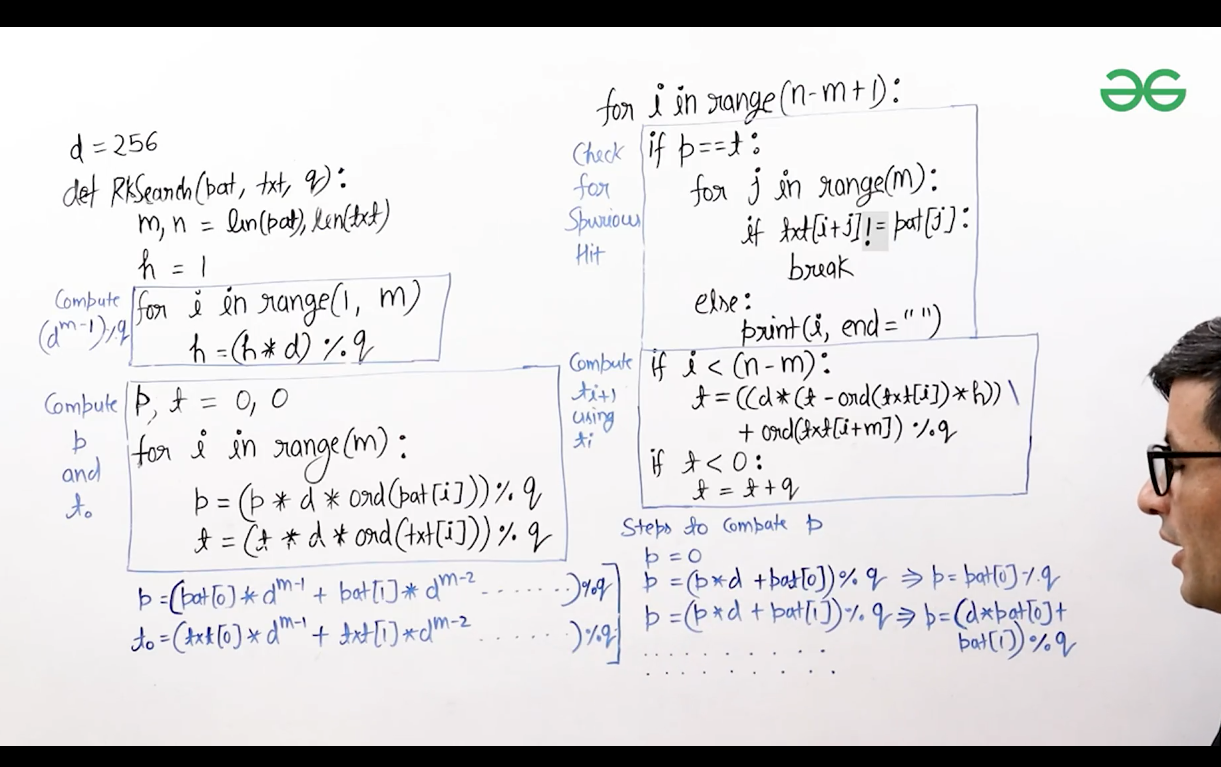 d = 256
def RkSearch(pat, txt, q):
m, n = len(pat), len(txt)
h = 1
Compute
(d^m-1)%q
for i in range(1, m)
h = (h * d) % q
Compute
p
and
t₀
p, t = 0, 0
for i in range(m):
p = (p * d * ord(pat[i])) % q
t = (t * d * ord(txt[i])) % q
p = (pat[0] * d^m-1 + pat[1] * d^m-2 ........)%q
t₀ = (txt[0] * d^m-1 + txt[1] * d^m-2 ........)%q
for i in range(n-m+1):
Check
for
Spurious
Hit
if p==t:
for j in range(m):
if txt[i+j] != pat[j]:
break
else:
print(i, end = " ")
Compute
tᵢ₊₁
using
tᵢ
if i < (n-m):
t = ((d*(t - ord(txt[i])*h)) \
+ ord(txt[i+m]) % q
if t < 0:
t = t + q
Steps to Compute p
p = 0
p = (p*d + pat[0])% q ⇒ p = pat[0] % q
p = (p*d + pat[1])% q ⇒ p = (d*pat[0] +
pat[1]) % q
. . . . . . . . . .
. . . . . . . .